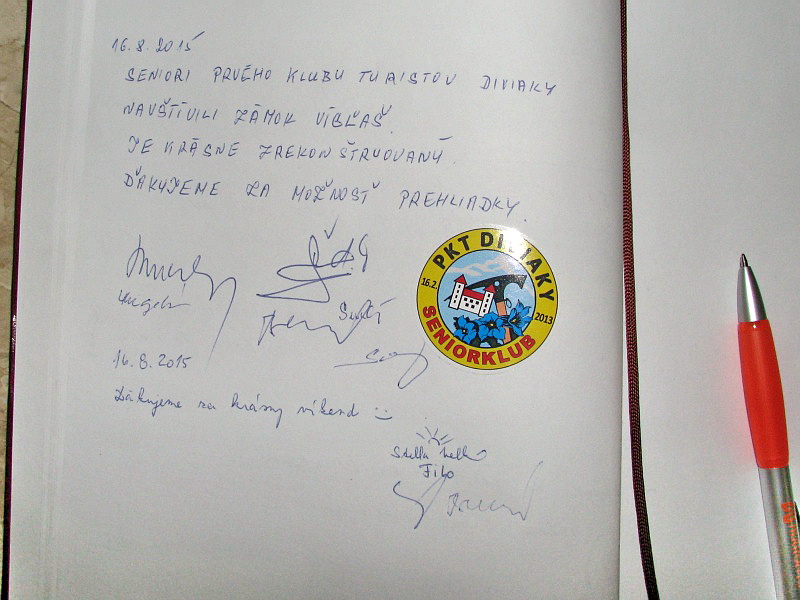 16.8.2015
SENIORI PRVÉHO KLUBU TURISTOV DIVIAKY
NAVŠTÍVILI ZÁMOK VÍGĽAŠ.
JE KRÁSNE ZREKONŠTRUOVANÝ.
ĎAKUJEME ZA MOŽNOSŤ PREHLIADKY.
PKT DIVIAKY
16.2. 2013
SENIORKLUB
16.8.2015
Ďakujeme za krásny víkend :-)
Stella
Filo